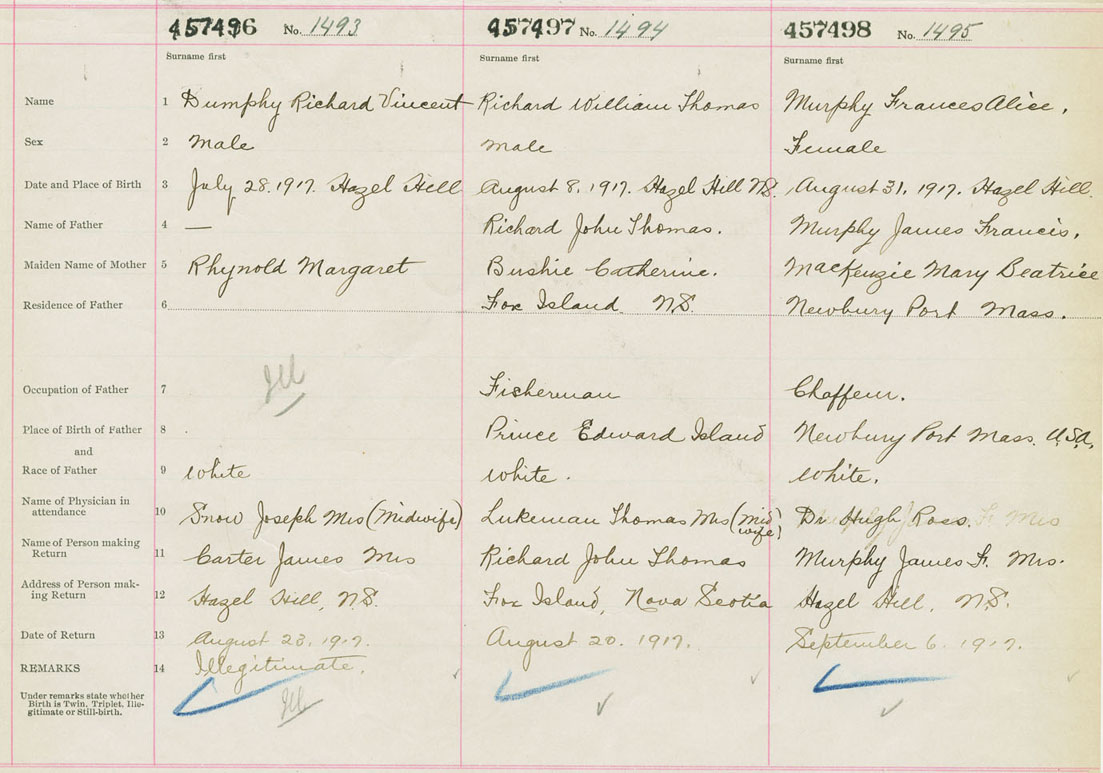 457496 No. 1493 457497 No. 1494 457498 No. 1495
Surname first Surname first Surname first
Name 1 Dumphy Richard Vincent Richard William Thomas Murphy Frances Alice.
Sex 2 Male Male Female
Date and Place of Birth 3 July 28. 1917. Hazel Hill August 8, 1917. Hazel Hill N.S. August 31, 1917. Hazel Hill.
Name of Father 4 — Richard John Thomas. Murphy James Francis.
Maiden Name of Mother 5 Rhynold Margaret Bushie Catherine. MacKenzie Mary Beatrice
Residence of Father 6 Fox Island. N.S. Newbury Port Mass.
Ill
Occupation of Father 7 Fisherman Chaffeur.
Place of Birth of Father 8 Prince Edward Island Newbury Port Mass. U.S.A.
and
Race of Father 9 White White. White.
Name of Physician in
attendance 10 Snow Joseph Mrs (Midwife) Lukeman Thomas Mrs (Mid
wife) Dr. Hugh Ross.
Name of Person making
Return 11 Carter James Mrs Richard John Thomas Murphy James F. Mrs.
Address of Person mak-
ing Return 12 Hazel Hill, N.S. Fox Island, Nova Scotia Hazel Hill, N.S.
Date of Return 13 August 23, 1917. August 20. 1917. September 6. 1917.
REMARKS 14 Illegitimate.
Under remarks state whether
Birth is Twin, Triplet, Ille-
gitimate or Still-birth.
Ill